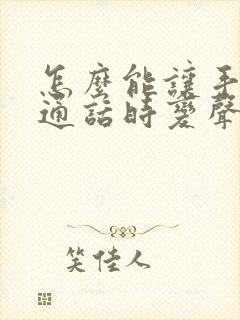 怎麼能讓手
通話時變聲
笑佳人